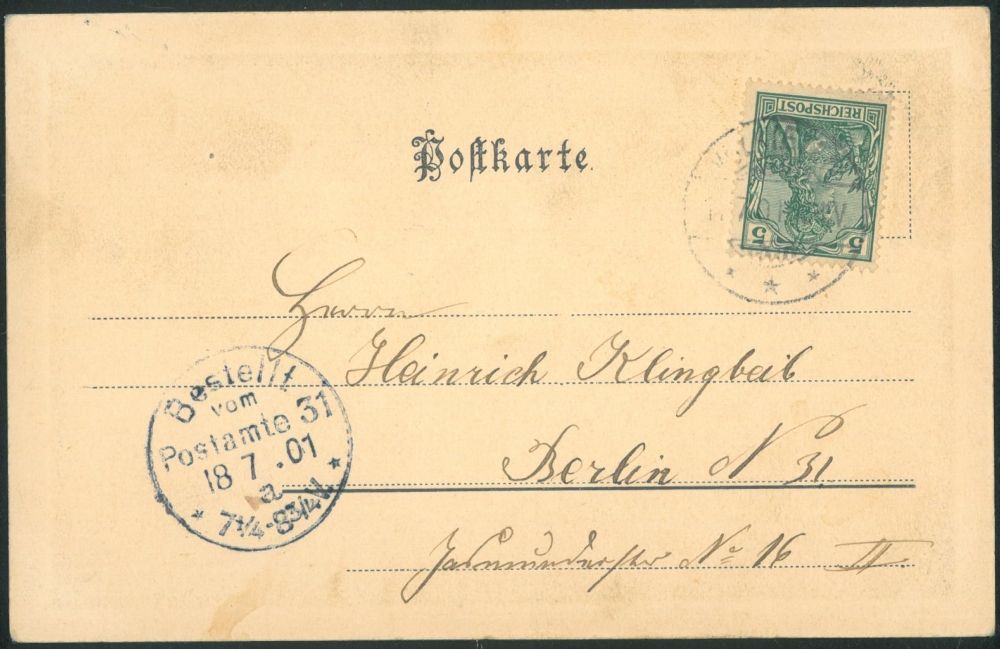 Postkarte.
REICHSPOST
5 5
Herrn
Heinrich Klingbeil
Berlin N 31.
Jasmunderstr No 16 II.
Bestellt
vom
Postamte 31
18 7 .01
a
7¼-8¾V.